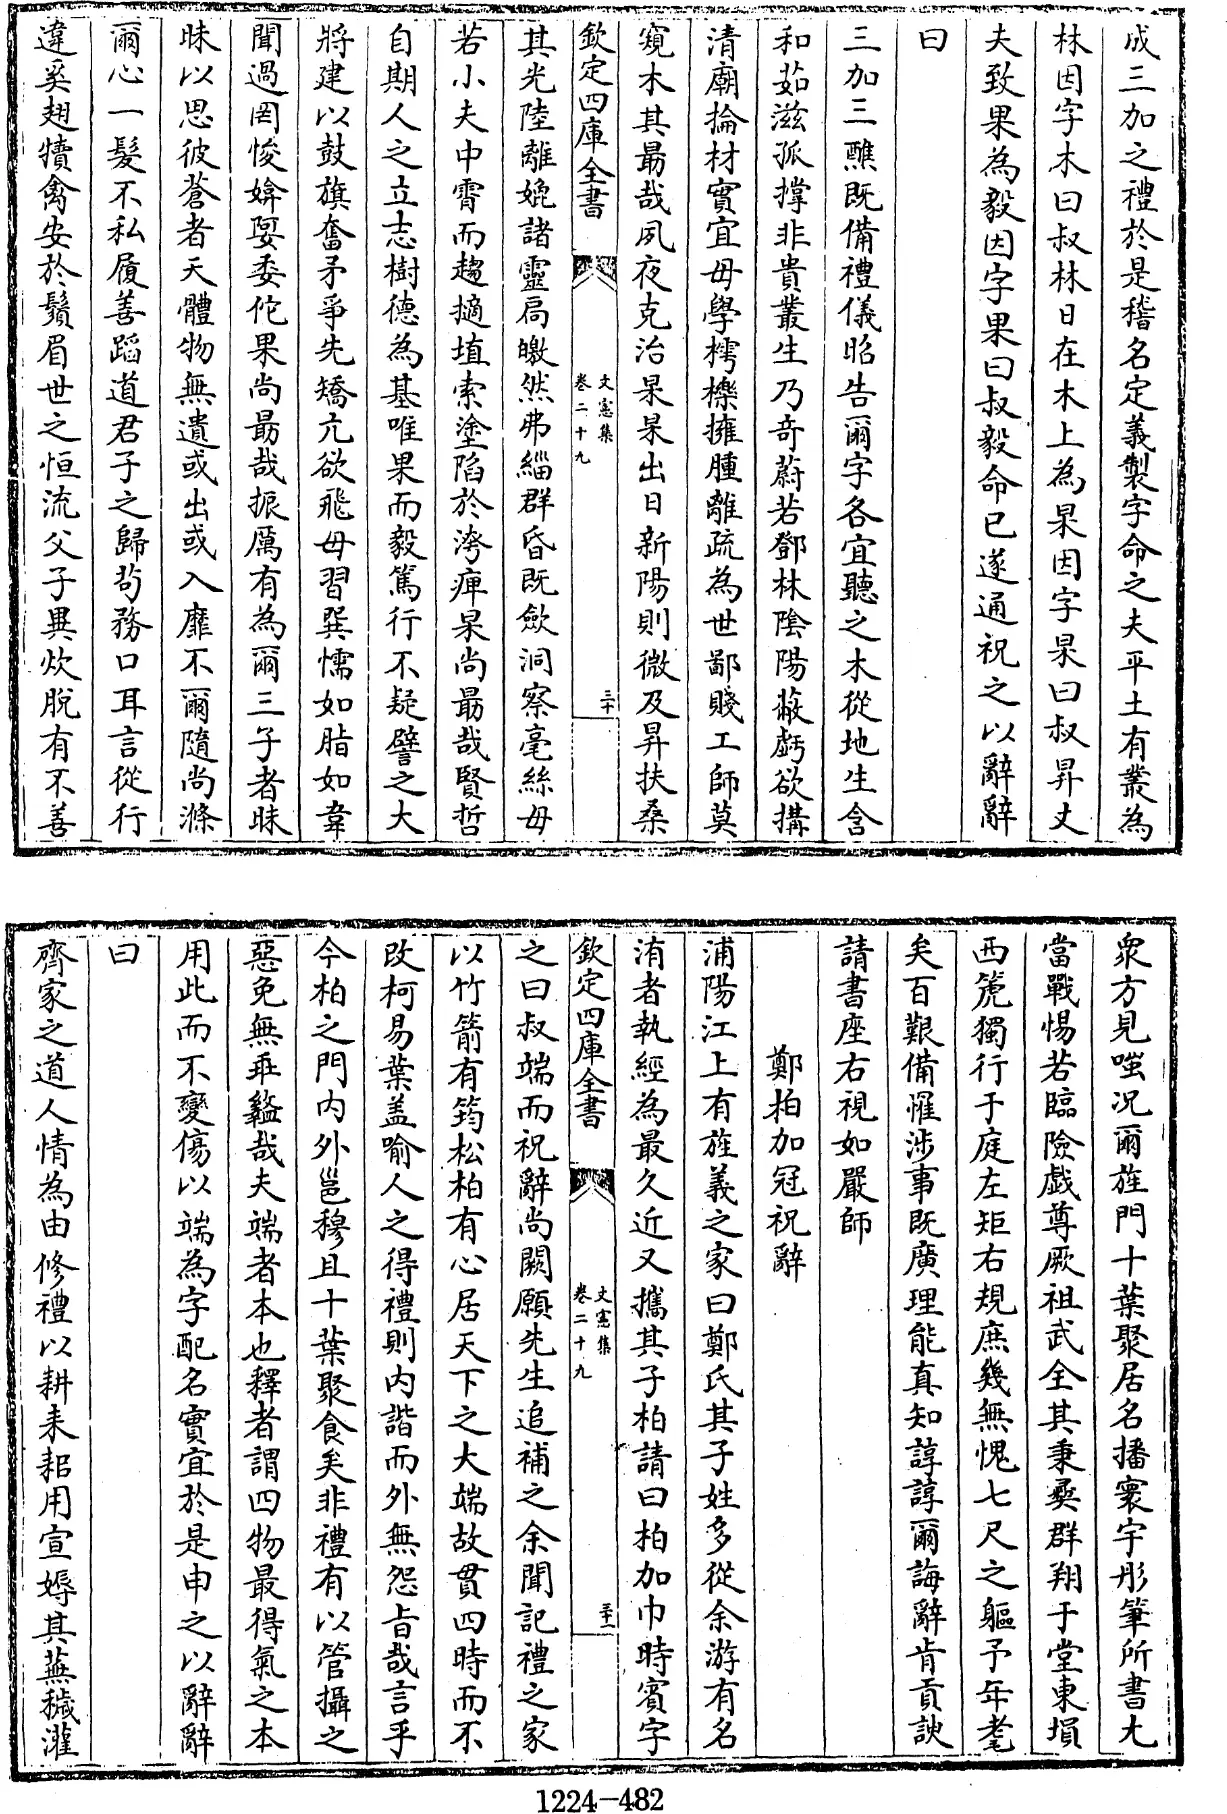 成三加之禮於是稽名定義製字命之夫平土有叢為
林因字木曰叔林日在木上為杲因字杲曰叔昇丈
夫致果為毅因字果曰叔毅命已遂通祝之以辭辭
曰
三加三醮既備禮儀昭告爾字各宜聽之木從地生含
和茹滋孤撑非貴叢生乃奇蔚若鄧林陰陽蔽虧欲搆
清廟掄材實宜毋學樗櫟擁腫離疏為世鄙賤工師莫
窺木其最哉夙夜克治杲杲出日新陽則微及昇扶桑
欽定四庫全書
文憲集
卷二十九
三十
其光陸離娩諸靈扃皦然弗緇群昏既斂洞察毫絲毋
若小夫中霄而趨擿埴索塗陷於洿庳杲尚最哉賢哲
自期人之立志樹德為基唯果而毅篤行不疑譬之大
將建以鼓旗奮矛爭先矯亢欲飛毋習巽懦如脂如韋
聞過罔悛媕娿委佗果尚最哉振厲有為爾三子者昧
昧以思彼蒼者天體物無遺或出或入靡不爾隨尚滌
爾心一髮不私履善蹈道君子之歸茍務口耳言從行
違奚翅犢禽安於鬚眉世之恒流父子異炊脫有不善
衆方見嗤況爾旌門十葉聚居名播寰宇彤筆所書尤
當戰惕若臨險戲尊厥祖武全其秉彝群翔于堂東塤
西箎獨行于庭左矩右規庶幾無愧七尺之軀予年耄
矣百艱備罹涉事既廣理能真知諄諄爾誨辭肯貢諛
請書座右視如嚴師
鄭柏加冠祝辭
浦陽江上有旌義之家曰鄭氏其子姓多從余游有名
洧者執經為最久近又攜其子柏請曰柏加巾時賓字
欽定四庫全書
文憲集
卷二十九
三十一
之曰叔端而祝辭尚闕願先生追補之余聞記禮之家
以竹箭有筠松柏有心居天下之大端故貫四時而不
改柯易葉盖喻人之得禮則内諧而外無怨旨哉言乎
今柏之門内外邕穆且十葉聚食矣非禮有以管攝之
惡免無乖盭哉夫端者本也釋者謂四物最得氣之本
用此而不變傷以端為字配名實宜於是申之以辭辭
曰
齊家之道人情為由修禮以耕耒耜用宣媷其蕪穢灌
1224—482